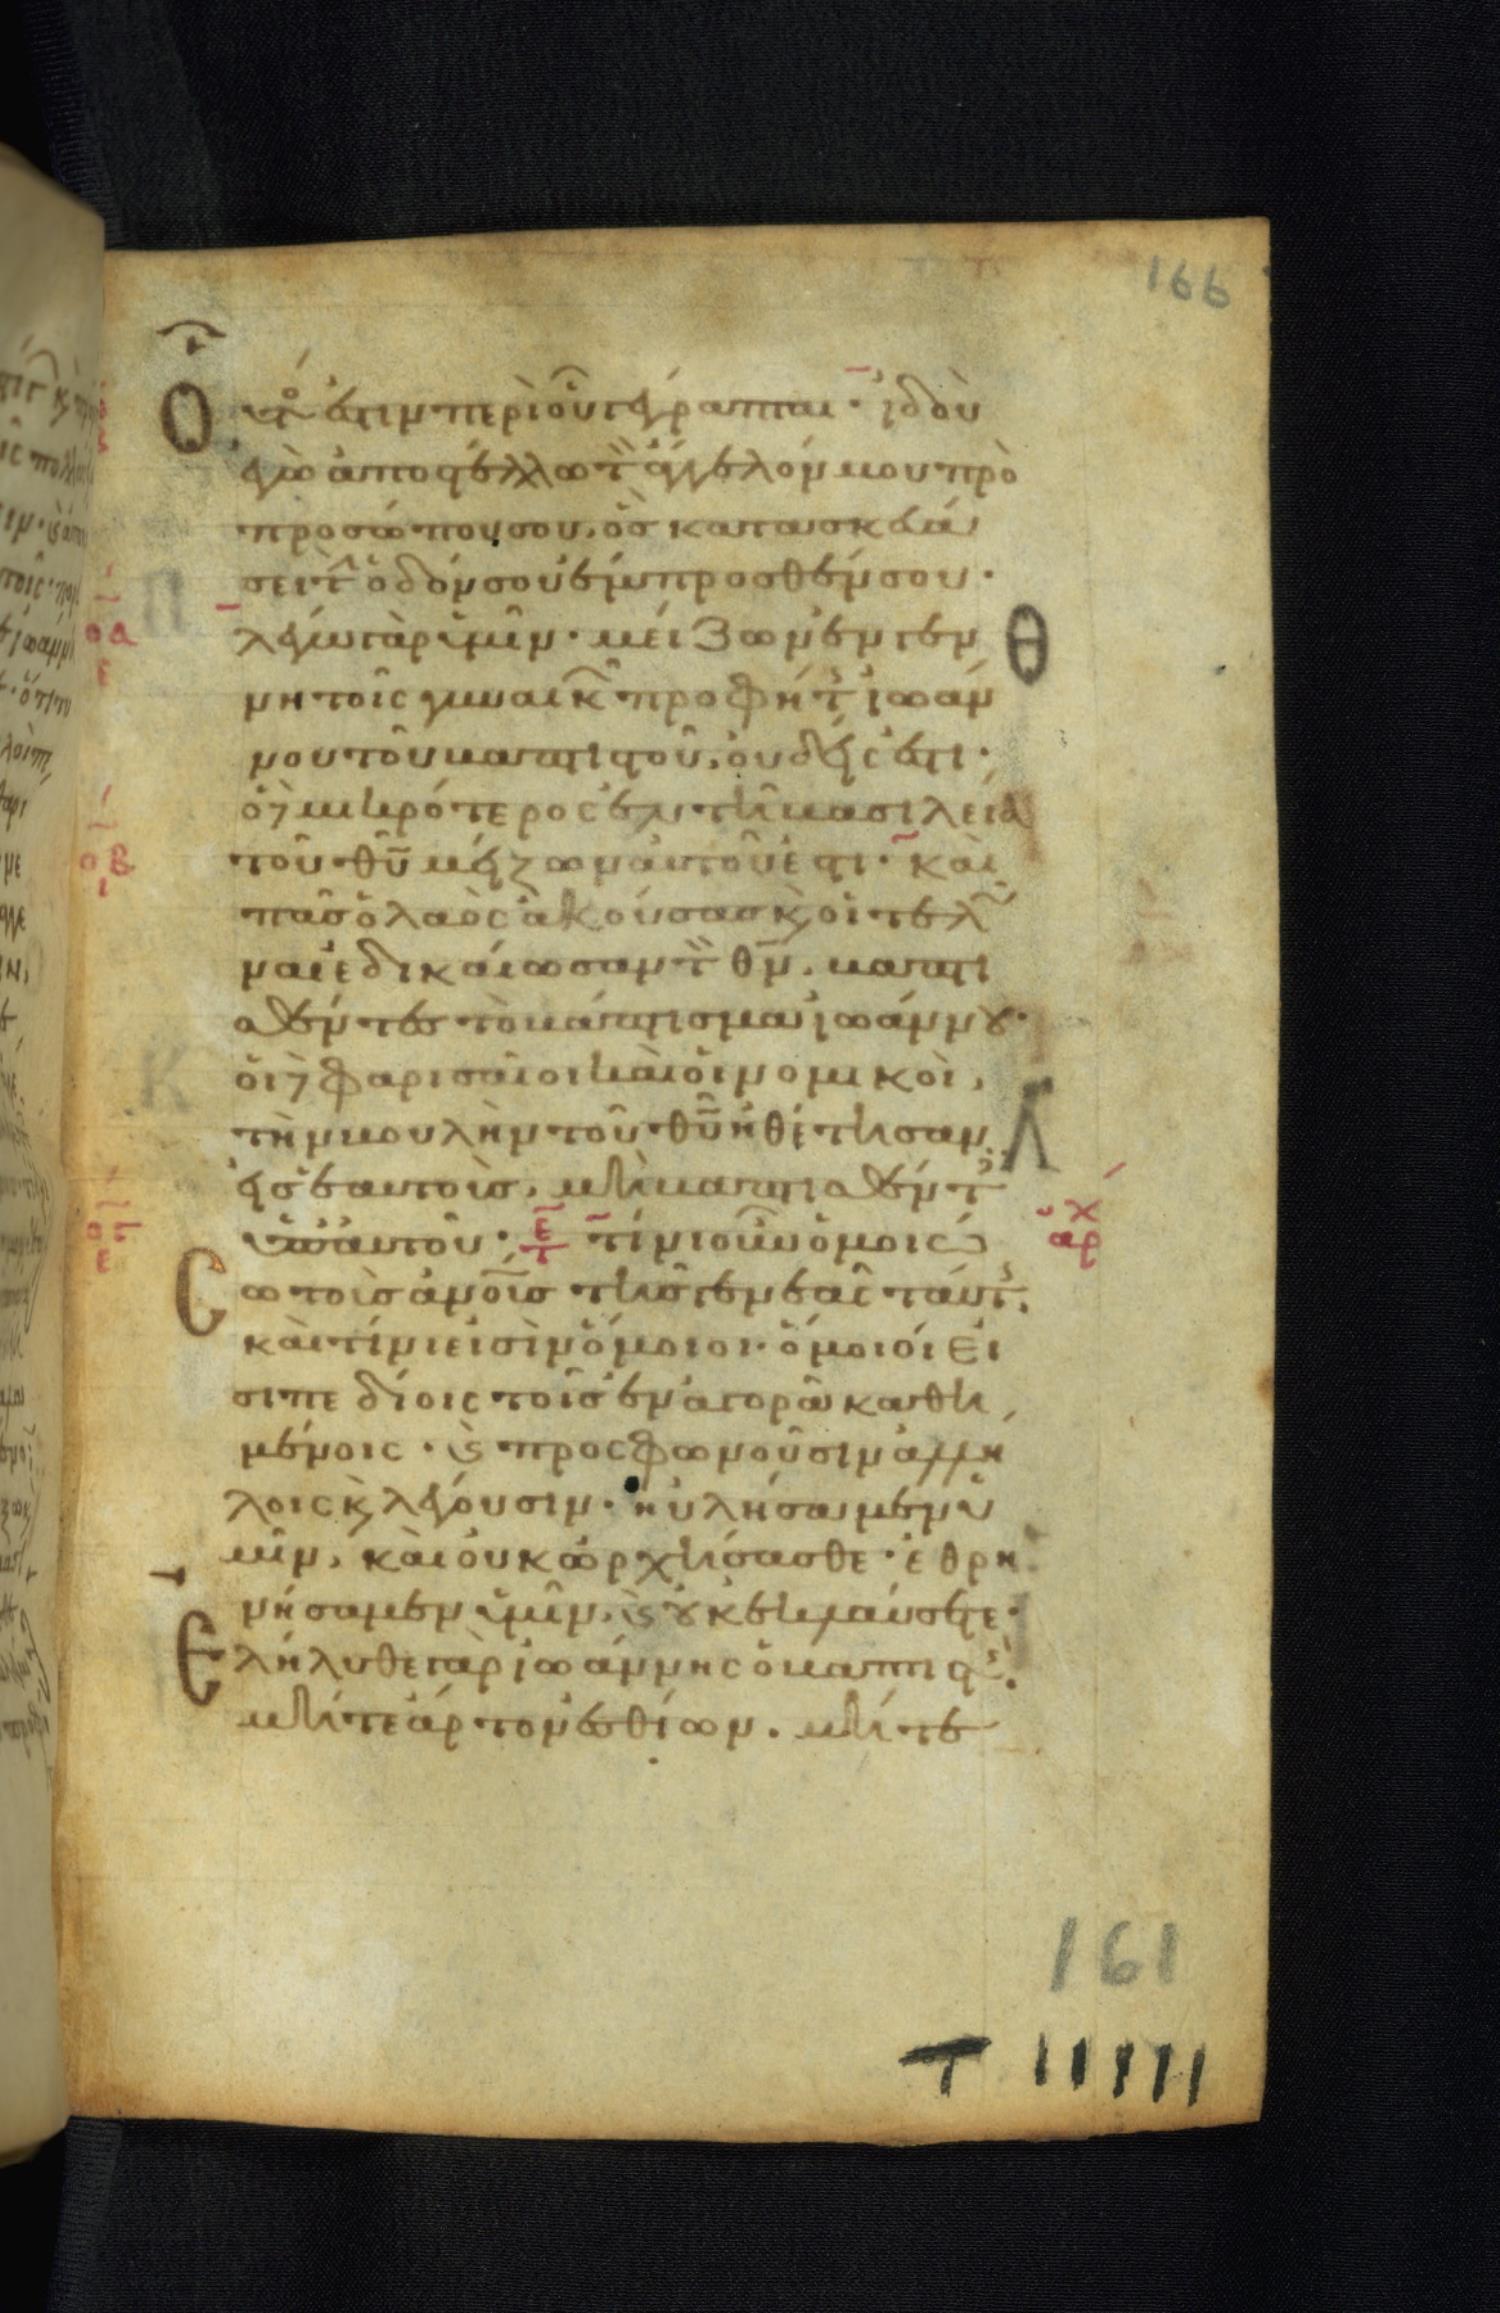 166
Ὁυτό ἐστιν περὶ οὗ γέγραπται · ἰδοὺ
ἐγὼ ἀποστέλλω τὸν ἄγγελόν μου πρὸ
προσώπου σου, ὃς κατασκευά
σει τὴν ὁδόν σου ἔμπροσθέν σου ·
λέγω γὰρ ὑμῖν · μείζων ἐν γεν
νητοῖς γυναικῶν προφήτης ἰωάν
νου τοῦ βαπτιστοῦ, οὐδείς ἐστι ·
ὁ δὲ μικρότερος ἐν τῆ βασιλεία
τοῦ θῦ μείζων αὐτοῦ ἐστι · καὶ
πᾶς ὁ λαὸς ἀκούσας κ οἱ τελῶ
ναι ἐδικαίωσαν τὸν θν, βαπτι
σθέντες τὸ βάπτισμα ἰωάννου ·
οἱ δὲ φαρισαῖοι καὶ οἱ νομικοὶ,
τὴν βουλὴν τοῦ θῦ ἠθέτησαν
εἰς ἑαυτοὺς, μὴ βαπτισθέντες
ὑπ' αὐτοῦ · τίνι οὖν ὁμοιώ
σω τοὺς ἀνοὺς τῆς γενεᾶς ταύτης,
καὶ τίνι εἰσὶν ὅμοιοι · ὅμοιοί εἰ
σι πεδίοις τοῖς ἐν ἀγορᾶ καθη
μένοις · κ προσφωνοῦσιν ἀλλή
λοις κ λέγουσιν · ηὐλήσαμεν ὑ
μῖν, καὶ οὐκ ὠρχήσασθε · ἐθρη
νήσαμεν ὑμῖν, κ οὐκ ἐκλαύσατε ·
Ἐλήλυθε γὰρ ἰωάννης ὁ βαπτιστὴς,
μήτε ἄρτον ἐσθίων, μήτε
161